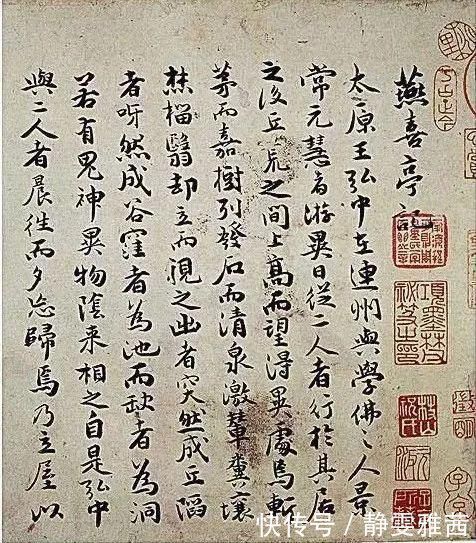 燕喜亭記
太原王弘中在連州與學佛〻人景
常元慧者游異日從二人者行於其居
之後丘荒之間上高而望得異處焉斬
茅而嘉樹列發石而清泉激輦糞壤
焚榴翳却立而視之出者突然成丘陷
者呀然成谷窪者為池而缺者為洞
若有鬼神異物陰来相之自是弘中
與二人者晨往而夕忘歸焉乃立屋以
項墨林
祕笈之印
快传号 / 静雯雅茜